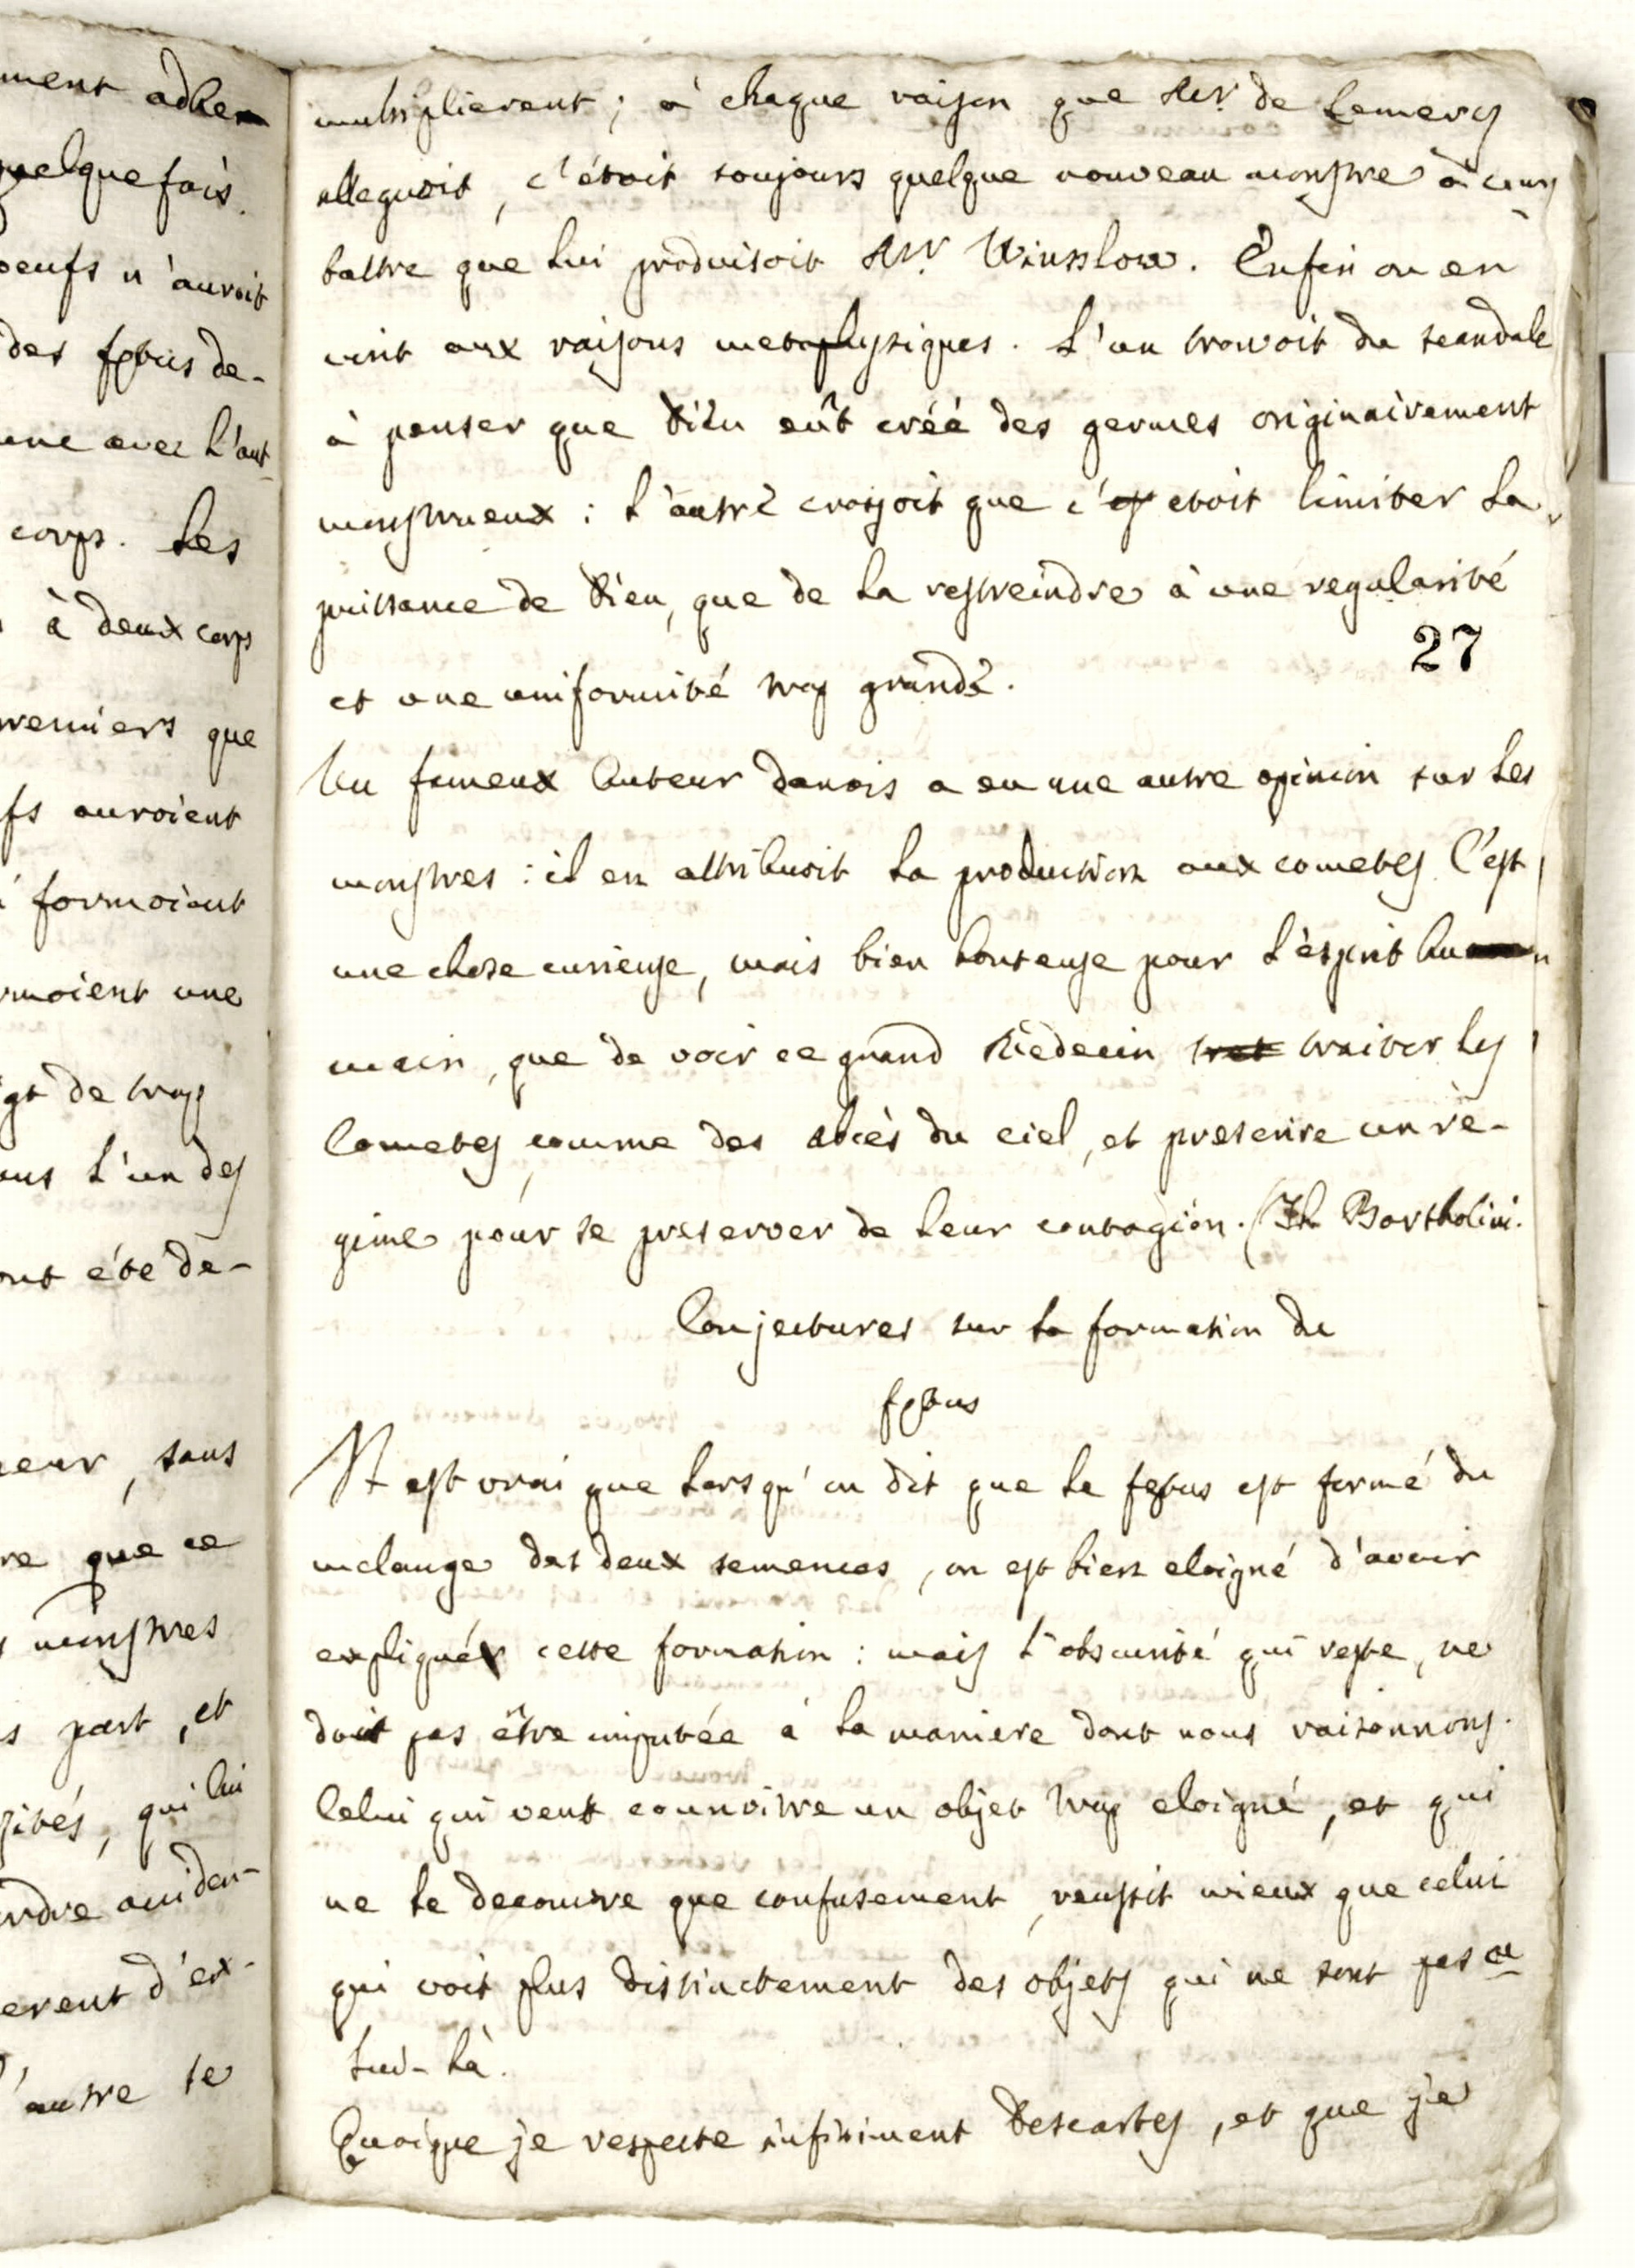 ment adhe
quelquefois.
oeufs n'auroit
des fœtus de-
une avec l'aut
corps. Les
à deux corps
premiers que
fs auroient
formoient
rmoient une
gt de trop
ous l'un des
ont été de-
eur, sans
re que ce
monstres
s part, et
sités, qui lui
rdre acciden-
erent d'ex-
l'autre se
multiplierent; à chaque raison que Mr. de Lemery
alleguoit, c'étoit toujours quelque nouveau monstre à com
battre que lui produisoit Mr. Winsslow. Enfin on en
vint aux raisons metaphysiques. L'un trouvoit du scandale
à penser que Dieu eût créé des germes originairement
monstrueux: l'autre croyoit que c'est etoit limiter la
puissance de Dieu, que de la restreindre à une regularité
27
et une uniformité trop grande.
Un fameux Auteur danois a eu une autre opinion sur les
monstres: il en attribuoit la production aux cometes. C'est
une chose curieuse, mais bien honteuse pour l'esprit hu
main, que de voir ce grand Medecin trait traiter les
Cometes, comme des abcès du ciel, et prescrire un re-
gime pour se preserver de leur contagion. (Th. Bartholini.
Conjectures sur la formation du
fœtus
Il est vrai que lorsqu'on dit que le fœtus est formé du
melange des deux semences, on est bien eloigné d'avoir
expliquéx cette formation: mais l'obscurité qui reste, ne
doit pas être imputée à la maniere dont nous raisonnons.
Celui qui veut connoitre un objet trop eloigné, et qui
ne le decouvre que confusement, reussit mieux que celui
qui voit plus distinctement des objets qui ne sont pas ce
lui-là.
Quoique je respecte infiniment Descartes, et que je